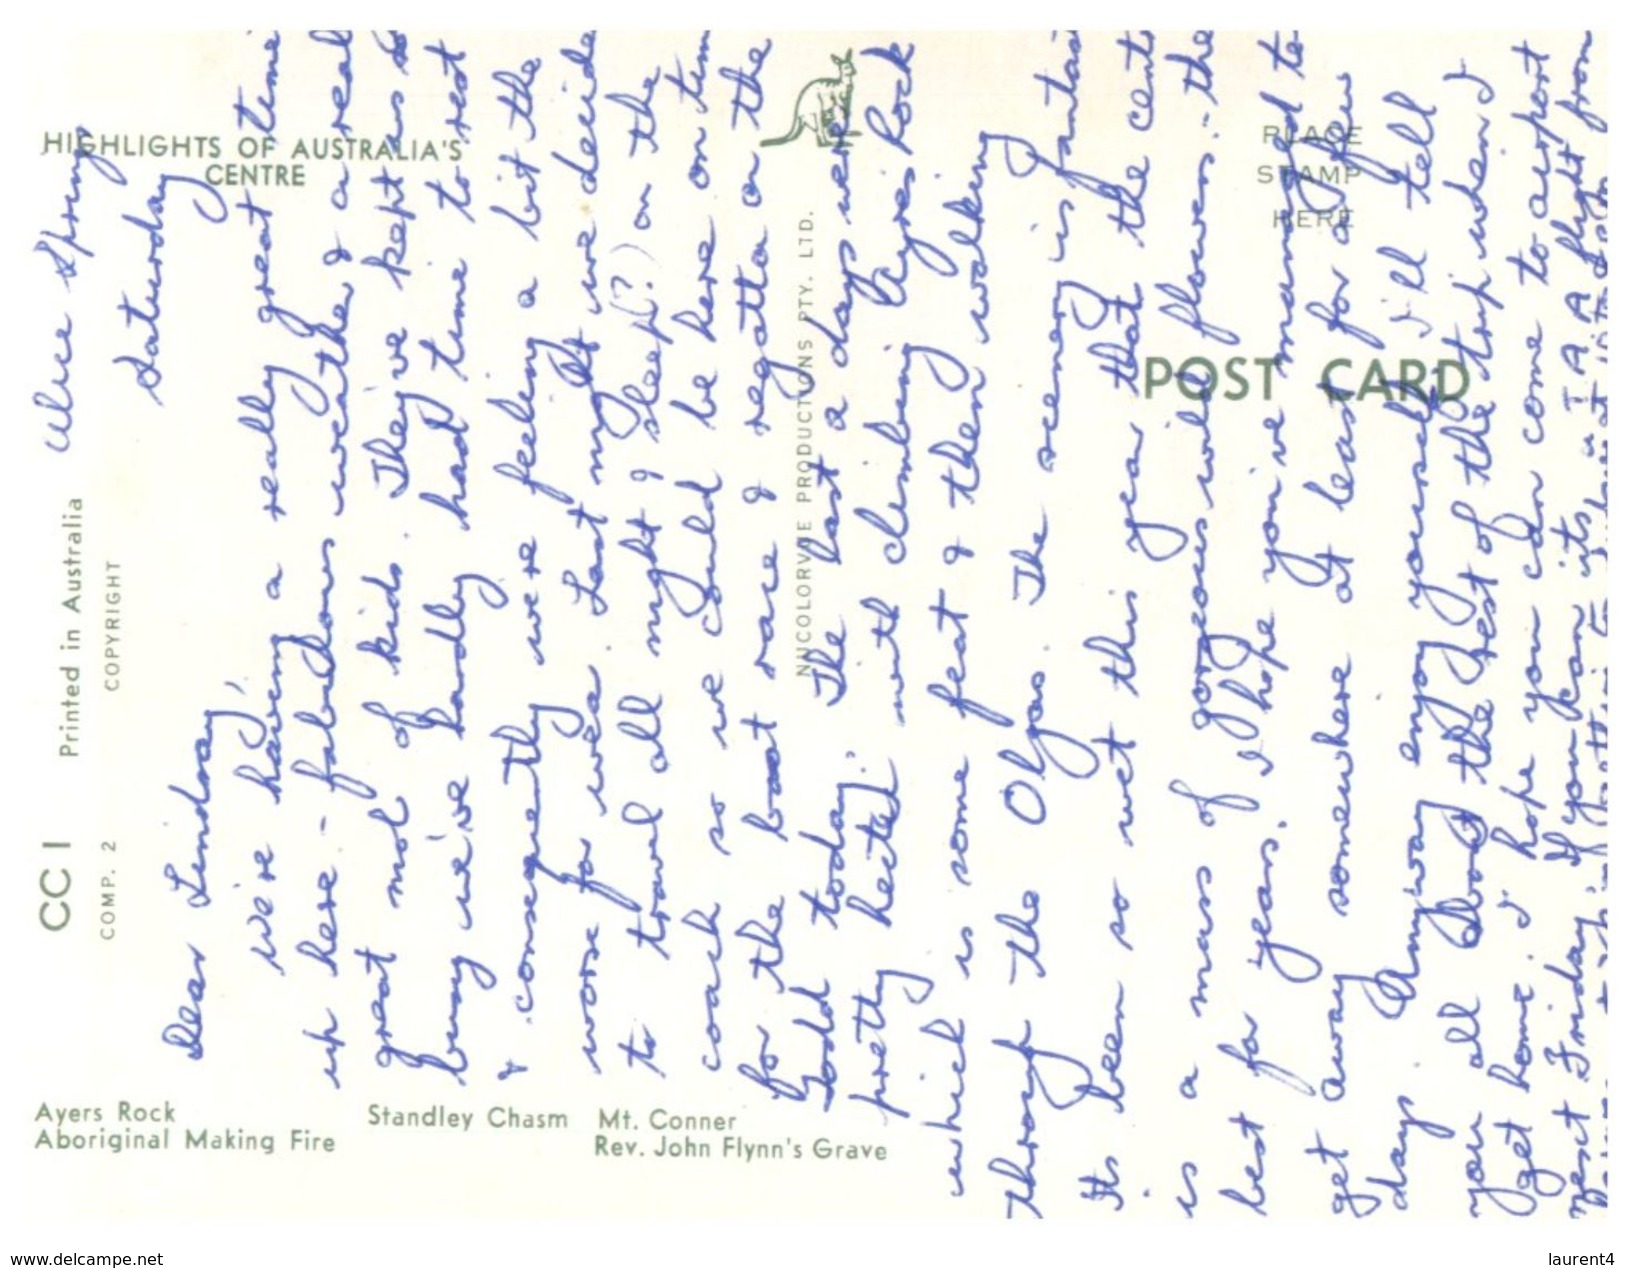 HIGHLIGHTS OF AUSTRALIA'S
CENTRE
PLACE
STAMP
HERE
POST CARD
NUCOLORVUE PRODUCTIONS PTY. LTD.
CC 1
COMP. 2
Printed in Australia
COPYRIGHT
Ayers Rock
Aboriginal Making Fire
Standley Chasm
Mt. Conner
Rev. John Flynn's Grave
Alice Springs
Saturday
Dear Lindsay,
we're having a really great time
up here - fabulous weather & a real
great mob of kids. They've kept us so
busy we've hardly had time to rest
& consequently were feeling a bit the
worse for wear. Last night we decide
to travel all night & sleep(?) on the
coach so we could be here on time
for the boat race & regatta on the
Todd today. The last 2 days were
pretty hectic with climbing Ayres Rock
which is some feat & then walking
through the Olgas. The scenery is fantas
Its been so wet this year that the cent
is a mass of gorgeous wild flowers - the
best for years. I hope you've managed to
get away somewhere at least for a few
days. Anyway enjoy yourself I'll tell
you all about the rest of the trip when I
get home. I hope you can come to airport
next Friday if you can its a T.A.A flight from